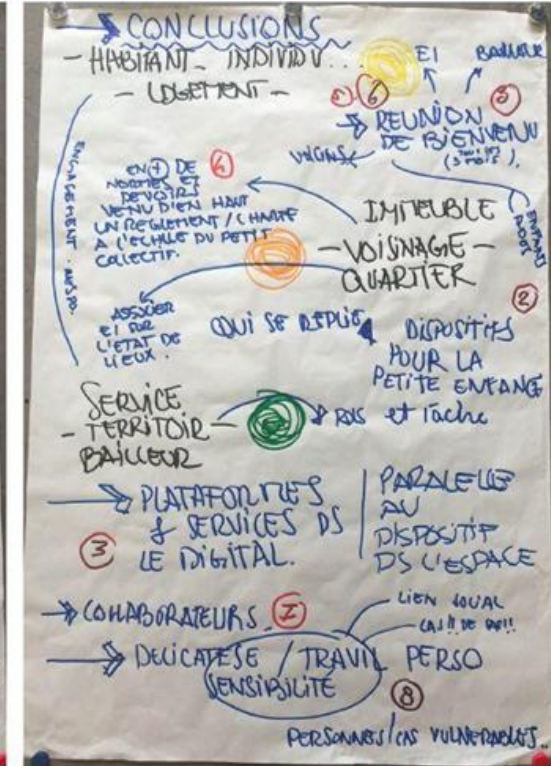 CONCLUSIONS
- HABITANT - INDIVIDU...
- LOGEMENT -
EI
BAILLEUR
6
3
REUNION
DE BIENVENU
VOISINS
EN + DE
NORMES ET
DEVOIRS
VENU D'EN HAUT
UN REGLEMENT / CHARTE
A L'ECHLLE DU PETIT
COLLECTIF.
4
IMMEUBLE
- VOISINAGE -
QUARTIER
ENFANTS
2
ASSOCIER
EI SUR
L'ETAT DE
LIEUX.
QUI SE REPLIE
DISPOSITIFS
POUR LA
PETITE ENFANCE
et Tache
SERVICE
- TERRITOIR -
BAILLEUR
PLATAFORMES
& SERVICES DS
LE DIGITAL.
3
PARALELLE
AU
DISPOSITIF
DS L'ESPACE
COLLABORATEURS.
LIEN SOCIAL
DELICATESE / TRAVIL PERSO
SENSIBILITE
8
PERSONNES / CAS VULNERABLES..